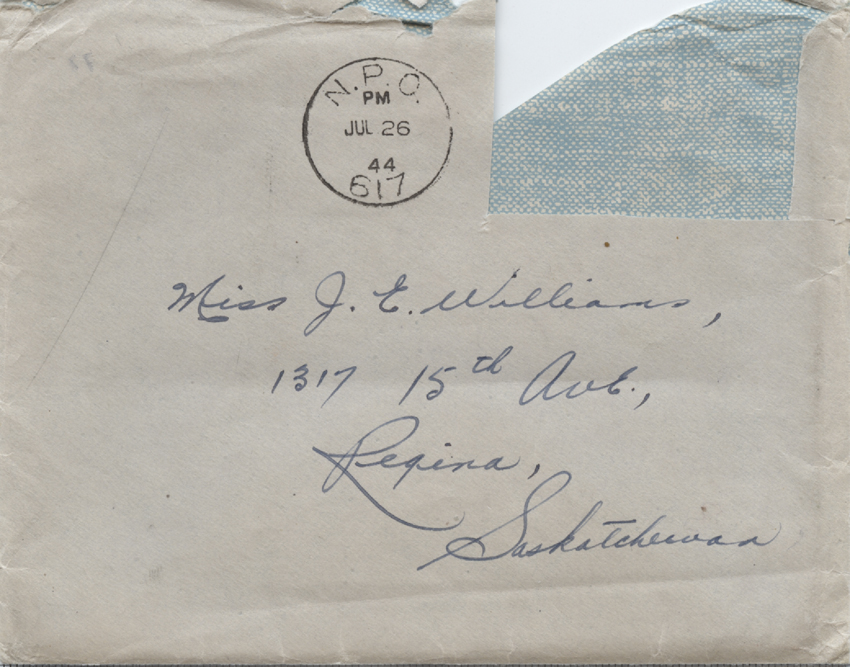 N.P.O.
PM
JUL 26
44
617
Miss J. E. Williams,
1317 15th Ave.,
Regina,
Saskatchewan